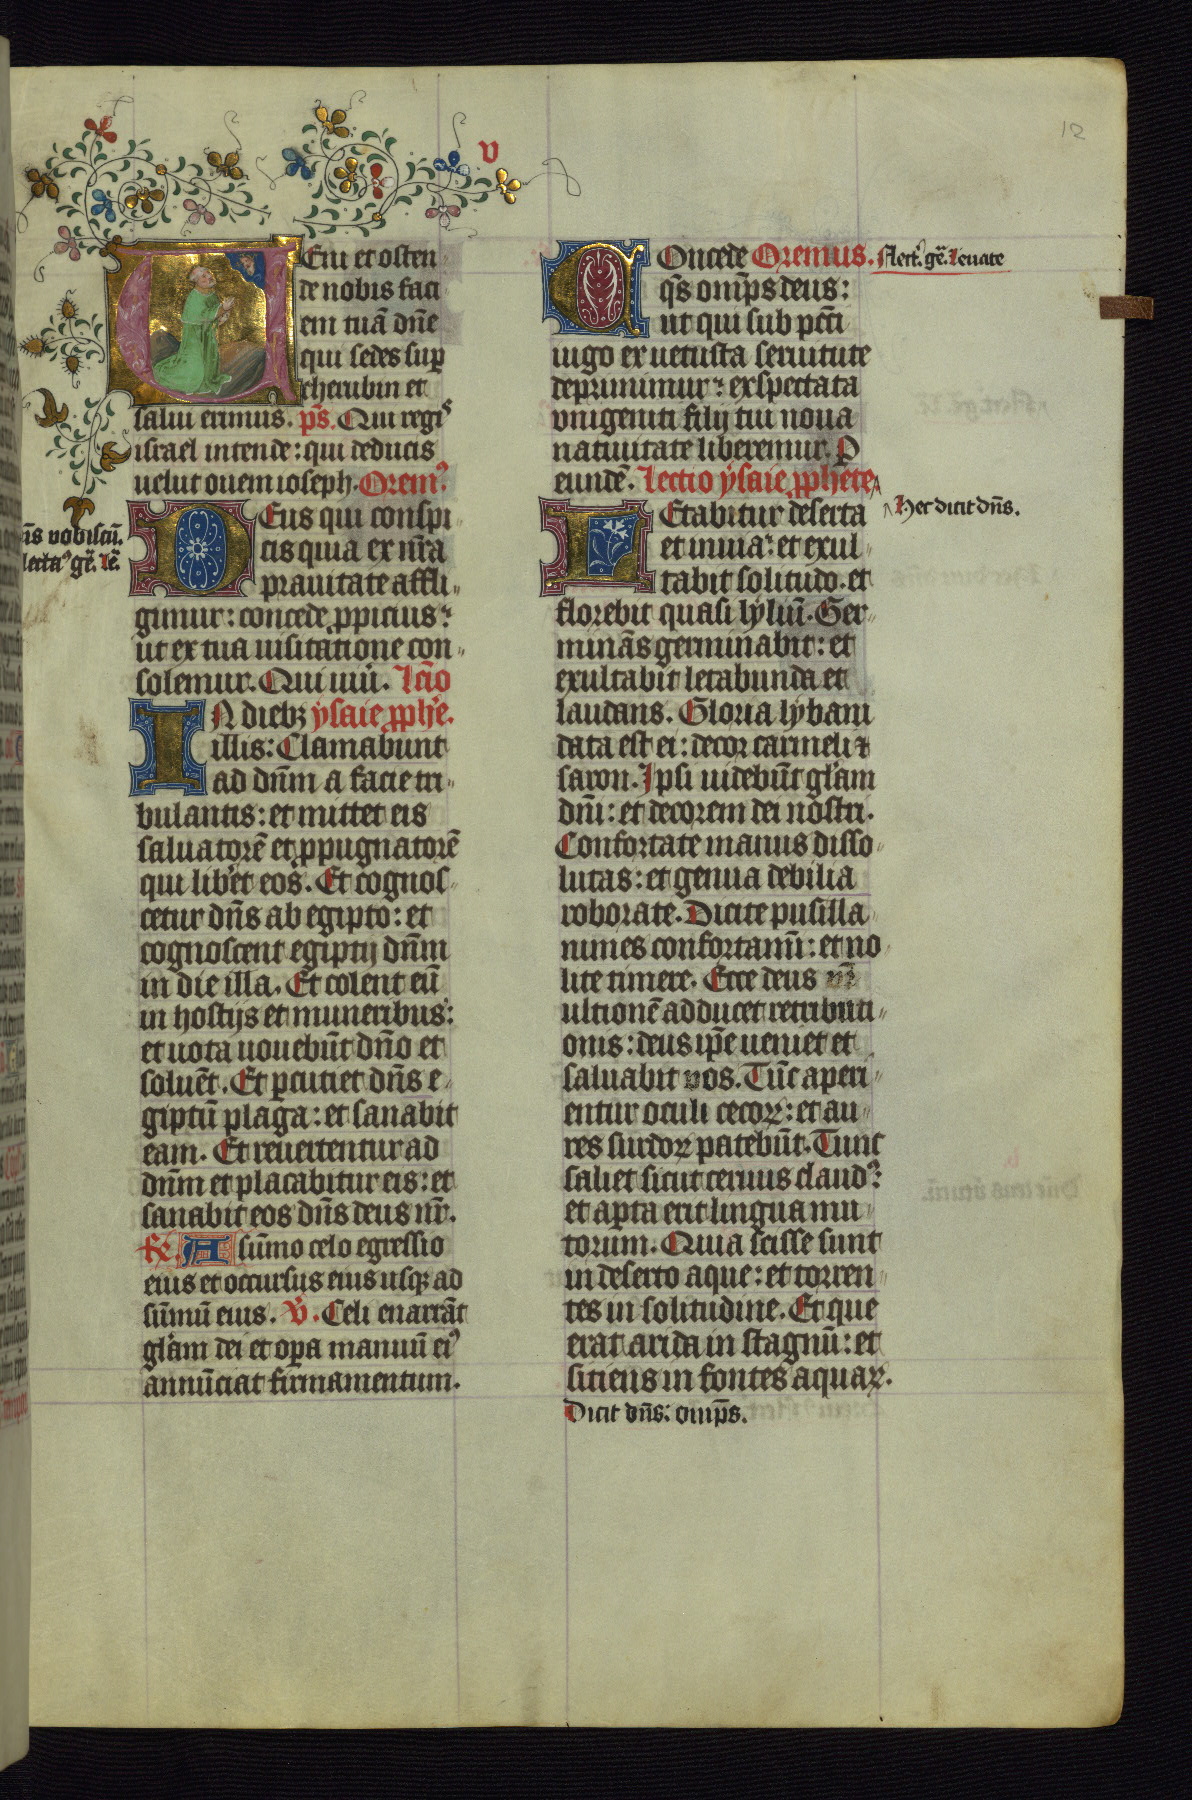 12
v
VEni et osten
de nobis faci
em tuā dn̄e
qui sedes suꝑ
cherubin et
salui erimus. p̄s. Qui regis
israel intende: qui deducis
uelut ouem ioseph. Oremꝰ
DEus qui conspi
cis quia ex nr̄a
prauitate affli
gimur: concede ꝓpicius:
ut ex tua uisitatione con
solemur. Qui uiui. Lc̄io
IN diebꝫ ysaie ꝓph̄e.
illis: Clamabunt
ad dn̄m a facie tri
bulantis: et mittet eis
saluatorē et ꝓpugnatorē
qui lib̄et eos. Et cognos
cetur dn̄s ab egipto: et
cognoscent egiptij dn̄m
in die illa. Et colent eū
in hostijs et muneribus:
et uota uouebūt dn̄o et
soluēt. Et ꝑcutiet dn̄s e
giptū plaga: et sanabit
eam. Et reuertentur ad
dn̄m et placabitur eis: et
sanabit eos dn̄s deus nr̄.
R. A sūmo celo egressio
eius et occursus eius usqꝫ ad
sūmū eius. V. Celi enarrāt
gl̄am dei et oꝑa manuū eiꝰ
annūciat firmamentum.
īs vobiscū.
flectaꝰ gē. lē
COncede Oremus. flectꝰ. gē. Leuate
qs̄ omp̄s deus:
ut qui sub pcc̄i
iugo ex uetusta seruitute
deprimimur: exspectata
vnigeniti filij tui noua
natiuitate liberemur. P
eundē. Lectio ysaie ꝓphete
LEtabitur deserta
Hec dicit dn̄s.
et inuia: et exul
tabit solitudo. et
florebit quasi lyliū. Ger
mināsgerminabit: et
exultabit letabunda et
laudans. Gloria lybani
data est ei: decor carmeli ⁊
saron. Ipsi uidebūt gl̄am
dn̄i: et decorem dei nostri.
Confortate manus disso
lutas: et genua debilia
roborate. Dicite pusilla
nimes confortamī: et no
lite timere. Ecce deus
ultionē adducet retributi
onis: deus ip̄e ueniet et
saluabit vos. Tūc aperi
entur oculi cecoꝝ: et au
res surdoꝝ patebūt. Tunc
saliet sicut ceruus claudꝰ:
et aꝑta erit lingua mu
torum. Quia scisse sunt
in deserto aque: et torren
tes in solitudine. Et que
erat arida in stagnū: et
sitiens in fontes aquaꝝ.
Dicit dn̄s: omp̄s.